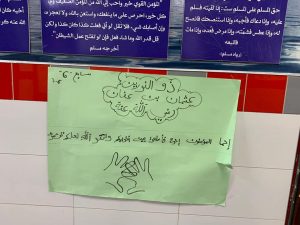 المؤمن القوي خير وأحب إلى الله من المؤمن الضعيف
كل خير، احرص على ما ينفعك، واستعن بالله، ولا تعجز
وإن أصابك شيء، فلا تقل: لو أني فعلت كذا وكذا، ولكن
قل قدر الله وما شاء فعل، فإن لو تفتح عمل الشيطان
أخرجه مسلم
حق المسلم على المسلم ست: إذا لقيته
وإذا دعاك فأجبه، وإذا استنصحك فانصح
وإذا عطس فشمته، وإذا مرض فعده، وإذا مات
رواه مسلم
سابع "6"
ذو النورين
عثمان بن عفان
رضي الله عنه
إنما المؤمنون إخوة فأصلحوا بين أخويكم واتقوا الله لعلكم ترحمون